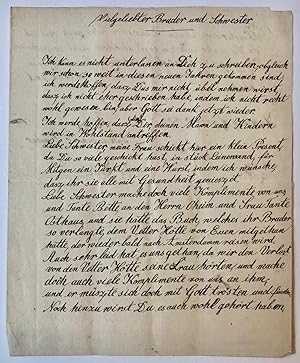 Vielgeliebter Bruder und Schwester
Ich kann es nicht unterlassen an Dich zu schreiben, obgleich
wir schon so weit in diesen neuen Jahren gekommen sind;
ich werde hoffen, dasz Du's mir nicht übel nehmen wirst,
dasz ich nicht eher geschrieben habe, indem ich nicht recht
wohl gewesen bin, aber Gott sei dank jetzt wieder.
Ich werde hoffen, dasz Dir, deinen Mann und Kindern
wird in Wohlstand antreffen.
Liebe Schwester, meine Frau schickt hier ein klein Present
da Du so viele geschickt hast, in stück Leinewand, für
Mützen, ein und eine Wurst, indem ich wünsche,
dasz ihr sie alle mit Gesundheit genieszet.
Liebe Schwester, mache doch viele Komplimente von uns
und Tante Bette an den Herrn Oheim und Frau Tante
Costhaus und sie hätte das Buch, welches ihr Bruder
so verlangte, dem Vetter Hotte von Euren mitgethan
hätte, der wieder bald nach Amsterdamm reisen wird.
Auch sehr leid hat es uns gethan, da wir den Verlust
von den Vetter Hotte seine Frau hörten, und mache
doch auch viele Komplimente von uns an ihm,
und er müszte sich doch mit Gott trösten und
Noch hinzu wirst Du es auch wohl gehört haben,